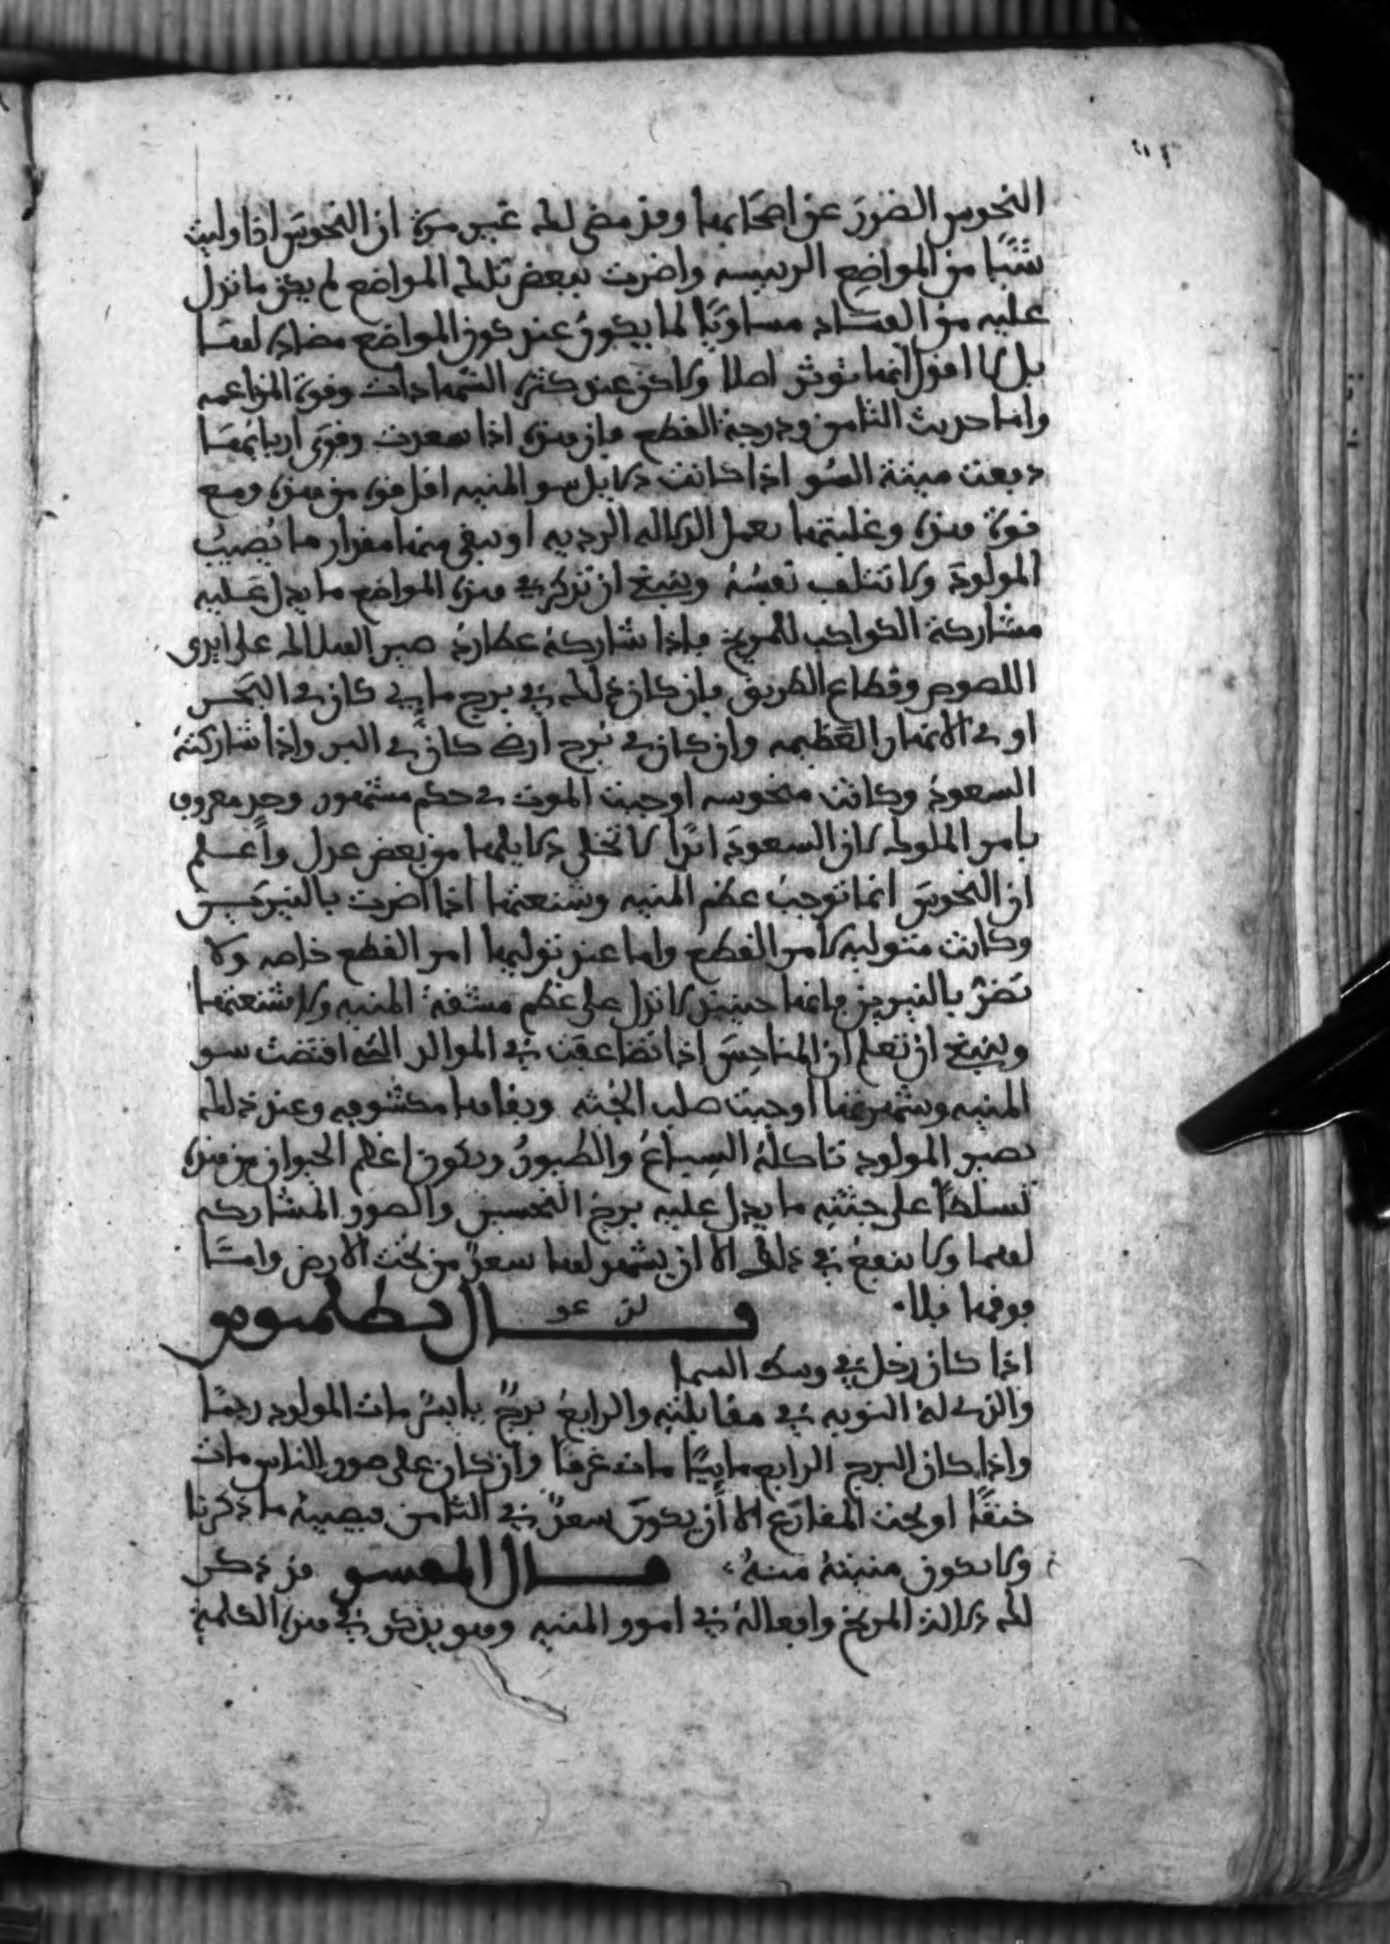 النحوس الضرر عن اصحابها وقد مضى لك غير مرة ان النحوس اذا وليت
شيئا من المواضع الرييسه واضرت ببعض تلك المواضع لم يكن ما تدل
عليه من الفساد مساويا لما يكون عند كون المواضع مضادة لها
بل لا اقول انها توثر اصلا ولاكن عند كثرة الشهادات وقوة المزاعمه
واما حديث الثامن ودرجة القطع فان هذه اذا سعدت وقوى اربابها
دفعت ميتة السو اذا كانت دلايل سو المنيه اقل قوة من هذه ومع
قوة هذه وغلبتها تعمل الدلاله الرديه او يبقى منها مقدار ما يصيب
المولود ولا تتلف نفسه وينبغي ان تذكر في هذه المواضع ما يدل عليه
مشاركة الكواكب للمريخ فاذا شاركه عطارد صير الهلاك على ايدي
اللصوص وقطاع الطريق فان كان ذلك في برج مايي كان في البحر
او في الانهار العظيمه وان كان في برج ارضي كان في البر واذا شاركته
السعود وكانت منحوسه اوجبت الموت في حكم مشهور وحد معروف
بامر الملوك لان السعود ابدا لا تخلى دلايلها من بعض عدل واعلم
ان النحوس انما توجب عظم المنيه وشنعتها اذا اضرت بالنيرين
وكانت متوليه لامر القطع واما عند توليها امر القطع خاصه ولا
تضر بالنيرين فانها حينيذ لا تدل على عظم مشقة المنيه ولا شنعتها
وينبغي ان تعلم ان المناحس اذا تضاعفت في الموالد التي اقتضت سو
المنيه وشهرتها اوجبت صلب الجثه وبقاها مكشوفه وعند ذلك
يصير المولود تاكله السباع والطيور ويكون اعظم الحيوان من هذه
تسلطا على جثته ما يدل عليه برج النحسين والصور المشاركه
لهما ولا ينفع في ذلك الا ان يشهد لها سعد من تحت الارض واما
فوقها فلا
قال بطلميوس
اذا كان زحل في وسط السما
والذي له النوبه في مقابلته والرابع برج يابس مات المولود ردما
واذا كان البرج الرابع ماييا مات غرقا وان كان على صور الناس مات
خنقا او تحت المقارع الا ان يكون سعد في الثامن فيصيبه ما ذكرنا
ولا تكون منيته منه قال المفسر قد ذكر
لك دلالة المريخ وافعاله في امور المنيه وهو يذكر في هذه الكلمة